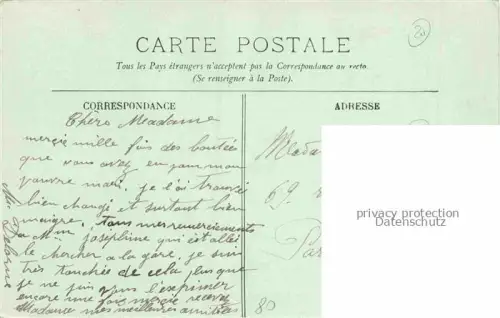 CARTE POSTALE
Tous les Pays étrangers n'acceptent pas la Correspondance au recto.
(Se renseigner à la Poste).
CORRESPONDANCE
ADRESSE
Chère Madame
mercie mille fois des boutées
que vous avez eu pour mon
pauvre mari, je l'ai trouvé
bien changé et surtout bien
maigre, tous mes remerciements
a Mm joséphine qui est allé
le chercher a la gare, je suis
très touchée de cela plus que
je ne puis vous l'exprimer
encore une fois mercie recevez
Madame mes meilleures amitiées
Mada
69
Par
80
20
privacy protection
Datenschutz